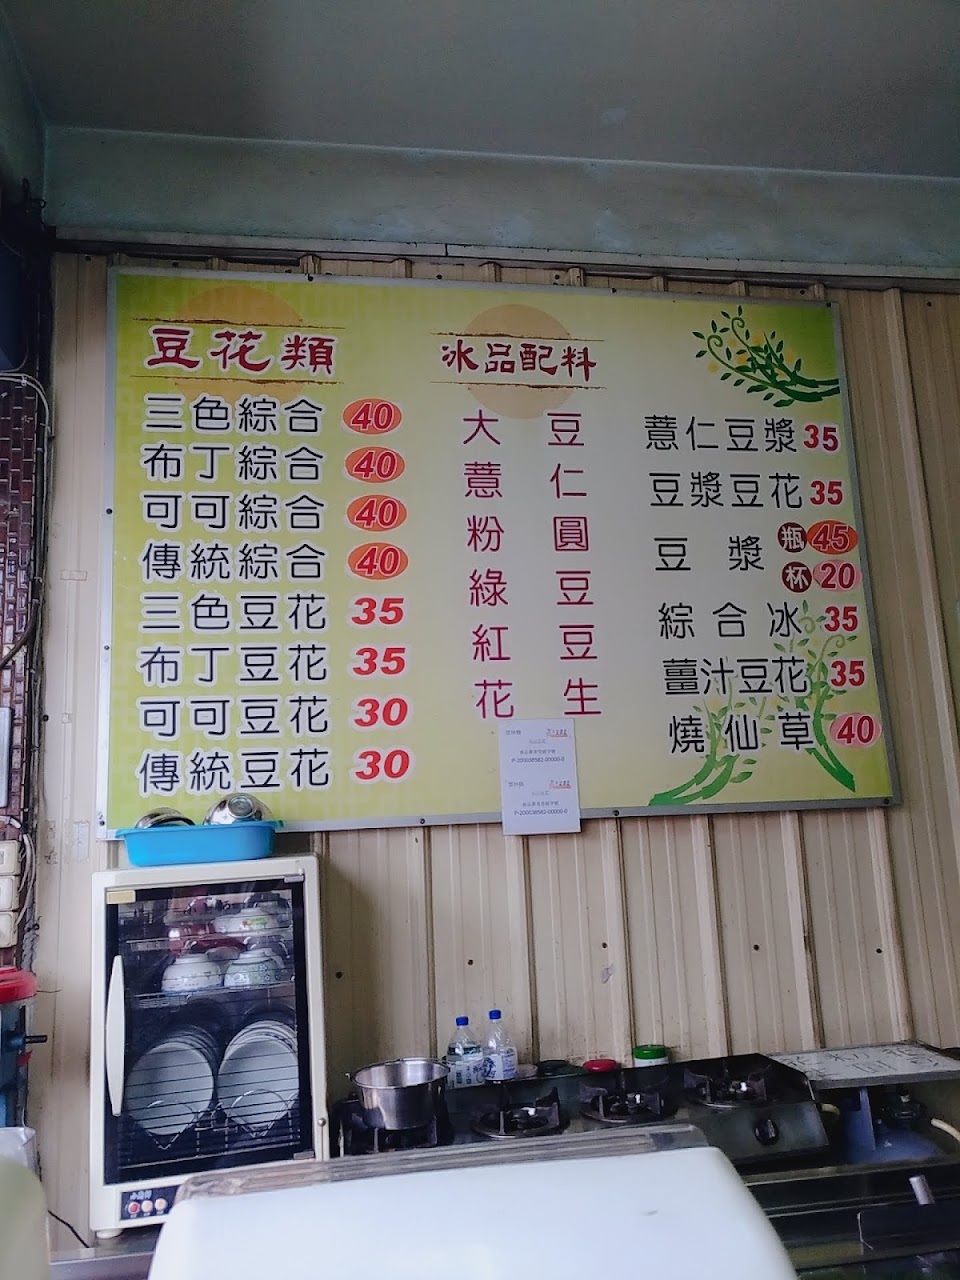 豆花類
三色綜合 40
布丁綜合 40
可可綜合 40
傳統綜合 40
三色豆花 35
布丁豆花 35
可可豆花 30
傳統豆花 30
冰品配料
大豆
薏仁
粉圓
綠豆
紅豆
花生
薏仁豆漿 35
豆漿豆花 35
豆漿 瓶 45
杯 20
綜合冰 35
薑汁豆花 35
燒仙草 40